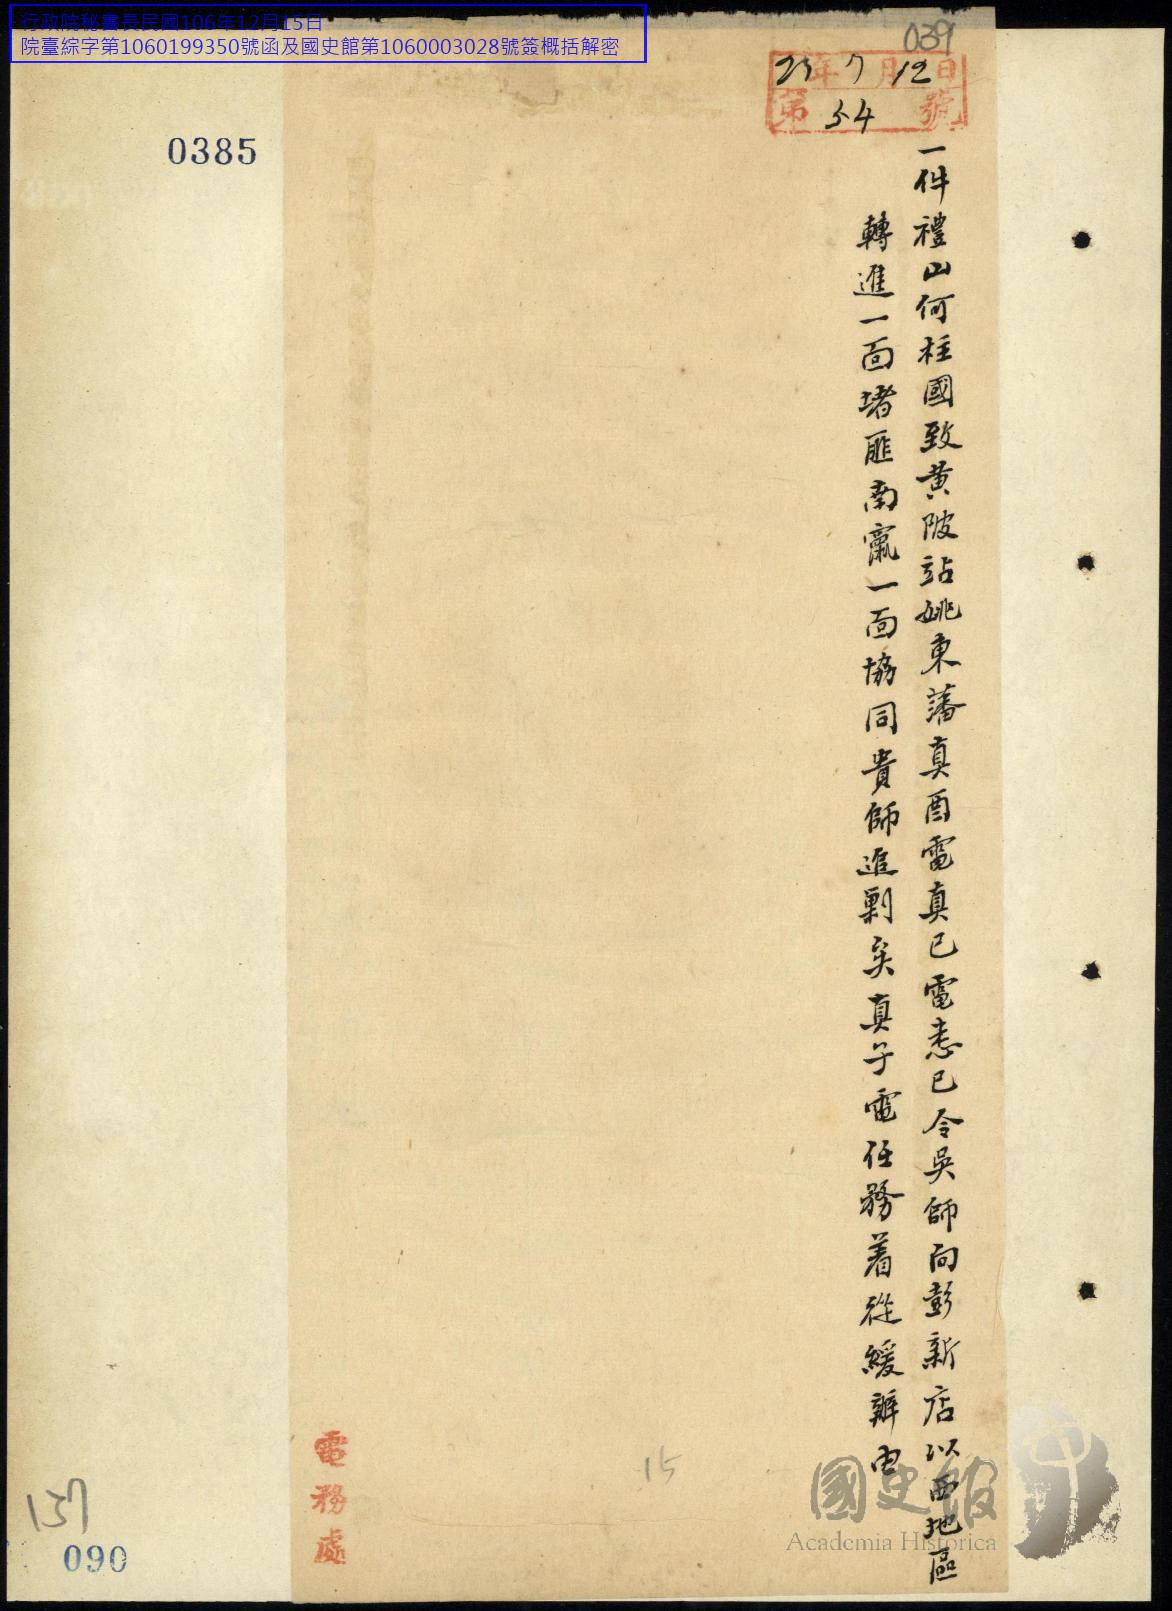 行政院秘書長民國106年12月15日
院臺綜字第1060199350號函及國史館第1060003028號簽概括解密
039
23年7月12日
第54號
0385
一件禮山何柱國致黄陂站姚東藩真酉電真已電悉已令吳師向彭新店以西地區
轉進一面堵匪南竄一面協同貴師追剿矣真子電任務着從緩辦由
電務處
15
137
090
國史館
Academia Historica